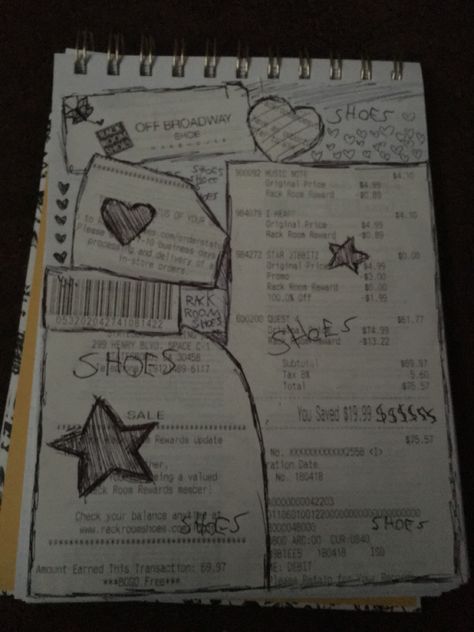 OFF BROADWAY
SHOE
RACK
ROOM
SHOES
SHOES
SHOES
SHOES
US OF YOUR
.com/orderstatu
7-10 business days
processing and delivery of a
in-store orders.
0532020427410814​22
RACK
ROOM
SHOES
299 HENRY BLVD. SPACE C-1
30458
SHOES
SALE
Rack Room Rewards update
being a valued
Rack Room Rewards member!
Check your balance anytime at
www.rackroomshoes.
SHOES
Amount Earned This Transaction: 69.97
***BOGO Free***
SHOES
900092 MUSIC NOTE $4.10
Original Price $4.99
Rack Room Reward -$0.89
984079 I HEART $4.10
Original Price $4.99
Rack Room Reward -$0.89
984272 STAR JIBBITZ $0.00
Original Price $4.99
Promo $3.00
Rack Room Reward $0.00
100.0% Off -$1.99
600200 QUEST $61.77
SHOES
$74.99
Reward -$13.22
Subtotal $69.97
Tax 8% 5.60
Total $75.57
You Saved $19.99 $$$$$$
$75.57
No. XXXXXXXXXXXX2558 <I>
ration Date
No. 180418
SHOES
ARC:00
180418 ISO
: DEBIT
Please Retain for Your